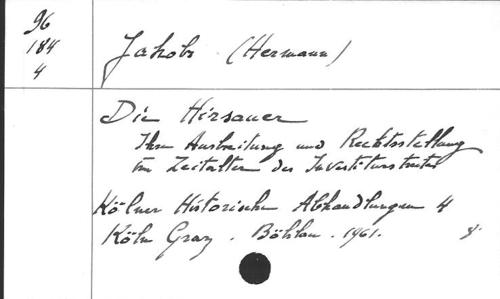 96
184
4
Jakobs (Hermann)
Die Hirsauer
Ihre Ausbreitung und Rechtsstellung
im Zeitalter des Investiturstreites
Kölner Historische Abhandlungen 4
Köln Graz. Böhlau. 1961. 8°